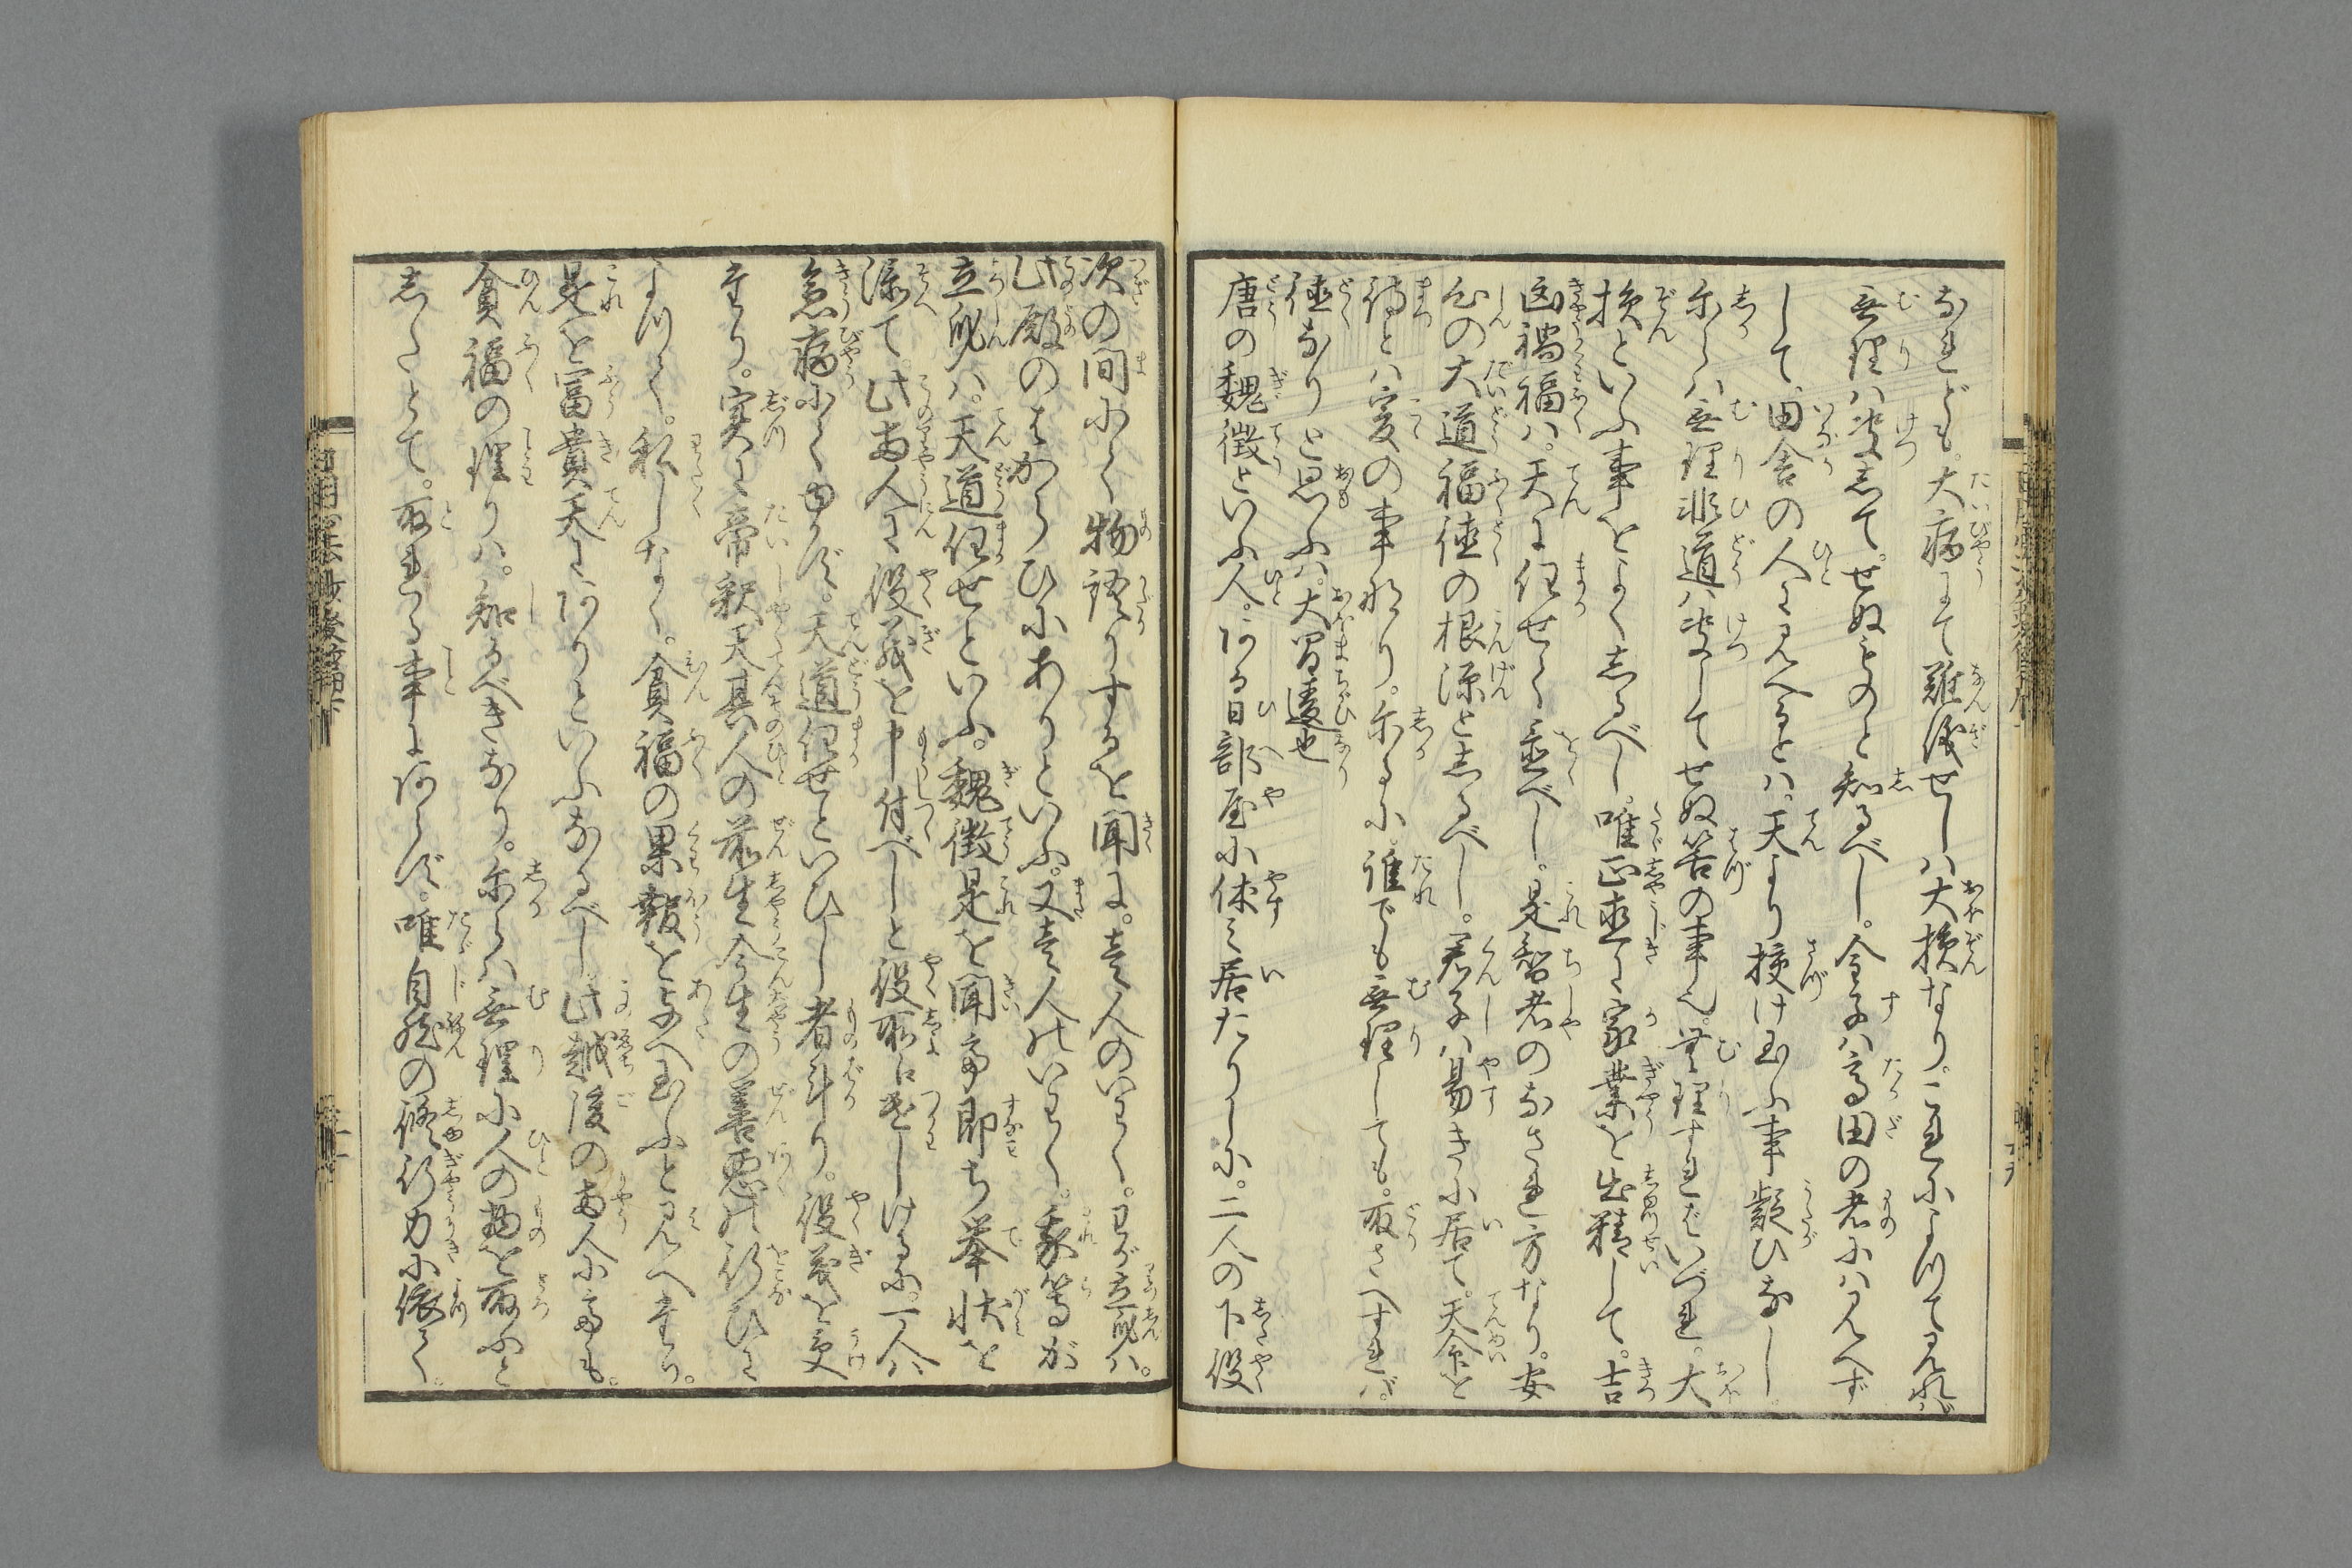 なれども。大病にて難儀せしハ大損なり。これによつて見れバ
無理ハ決志て。せぬものと知るべし。金子ハ高田の者にハ見へず
して。田舎の人に見へるとハ。天より授け玉ふ事疑ひなし
尓らハ無理非道ハ決してせぬ筈の事也。無理すれバいづれ。大
損といふ事をよく志るべし。唯正直に家業を出精して。吉
凶禍福ハ。天に任せて置べし。是智者のなされ方なり。安
心の大道福徳の根源と志るべし。君子ハ易きに居て。天命を
待とハ爰の事なり。尓るに。誰でも無理しても。取さへすれバ。
徳なりと思ふハ。大間違也
唐の魏徴といふ人。ある日部屋に休み居たりしに。二人の下役
次の間にて物語りするを聞に。壱人のいわく。わが立身ハ。
此殿のはからひにありといふ。又壱人のいわく。我等が
立身ハ。天道任せといふ。魏徴是を聞て即ち挙状を
添て此両人に役義を申付べしと役所に遣しけるに。一人ハ
急病にて出ず。天道任せといひし者斗り。役義を受
たり。実に帝釈天其人の前生今生の善悪の行ひに
よつて。私しなく。貧福の果報を与へ玉ふと見へたり。
是を富貴天にありといふなるべし此越後の両人にても。
貧福の理りハ。知るべきなり。尓らハ無理に人の物を取ふと
志たとて。取れる事にあらず。唯自然の修行力に依て。